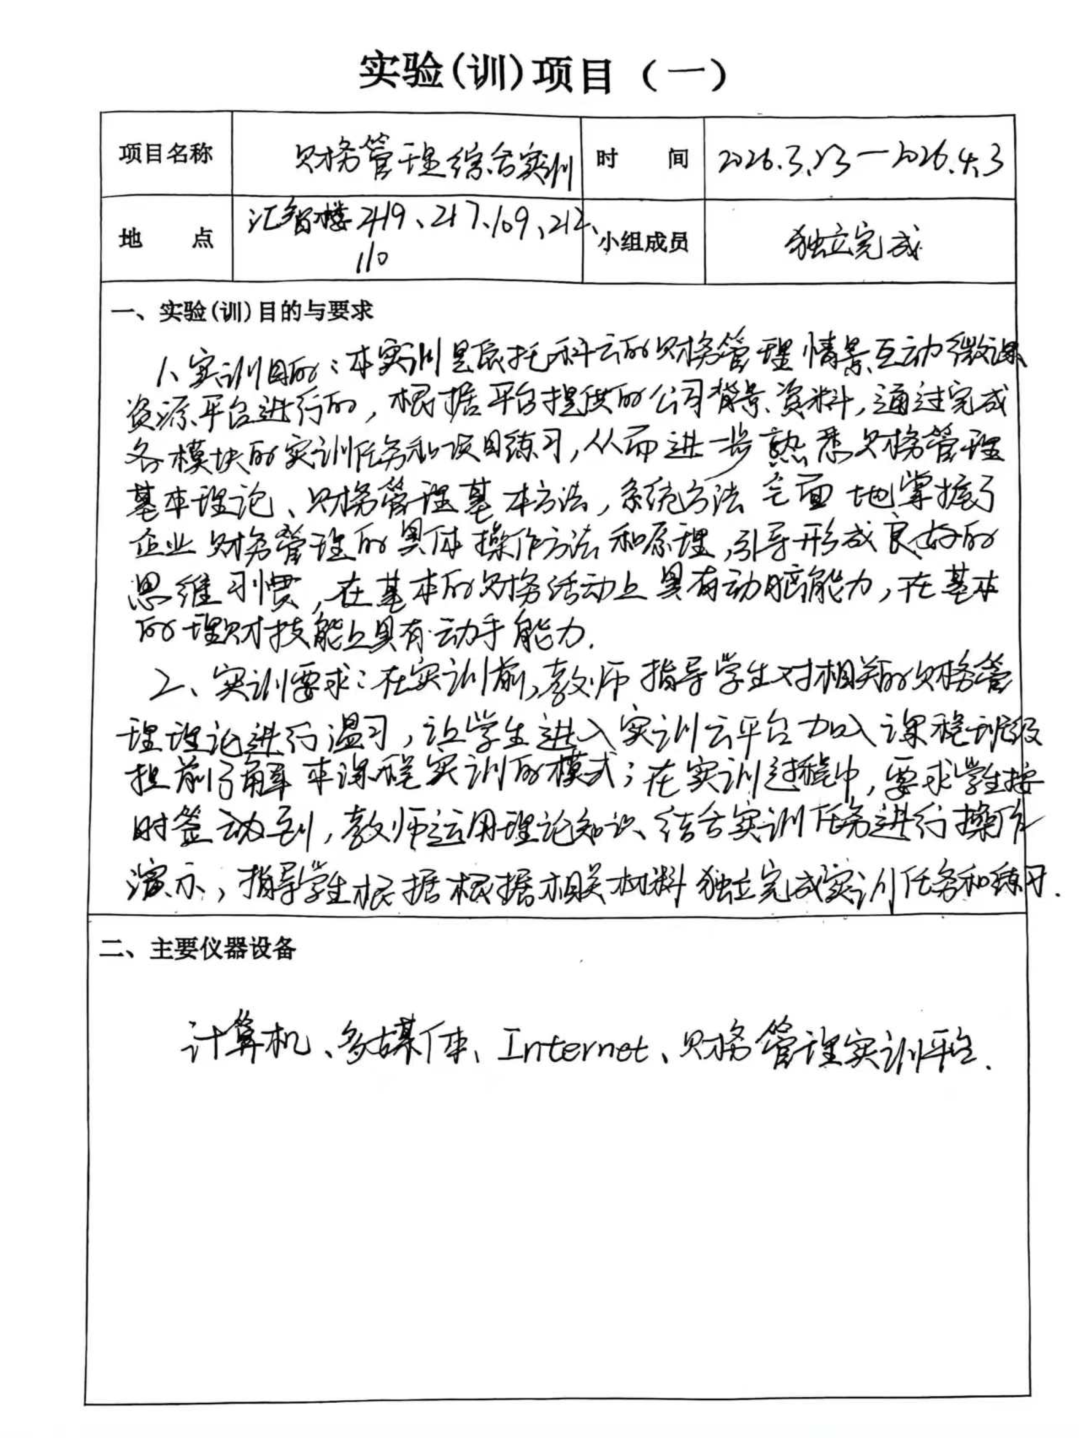 实验(训)项目（一）
项目名称 财务管理综合实训 时 间 2026.3.23—2026.4.3
地 点 汇智楼219、217、109、212、110 小组成员 独立完成
一、实验(训)目的与要求
1、实训目的：本实训是依托科云的财务管理情景互动微课
资源平台进行的，根据平台提供的公司背景资料，通过完成
各模块的实训任务和项目练习，从而进一步熟悉财务管理
基本理论、财务管理基本方法，系统方法全面地掌握了
企业财务管理的具体操作方法和原理，引导形成良好的
思维习惯，在基本的财务活动上具有动脑能力，在基本
的理财技能上具有动手能力.
2、实训要求：在实训前，教师指导学生对相关的财务管
理理论进行温习，让学生进入实训云平台加入课程班级
提前了解本课程实训的模式；在实训过程中，要求学生按
时签到，教师运用理论知识、结合实训任务进行操作
演示，指导学生根据根据相关材料独立完成实训任务和练习.
二、主要仪器设备
计算机、多媒体、Internet、财务管理实训平台.